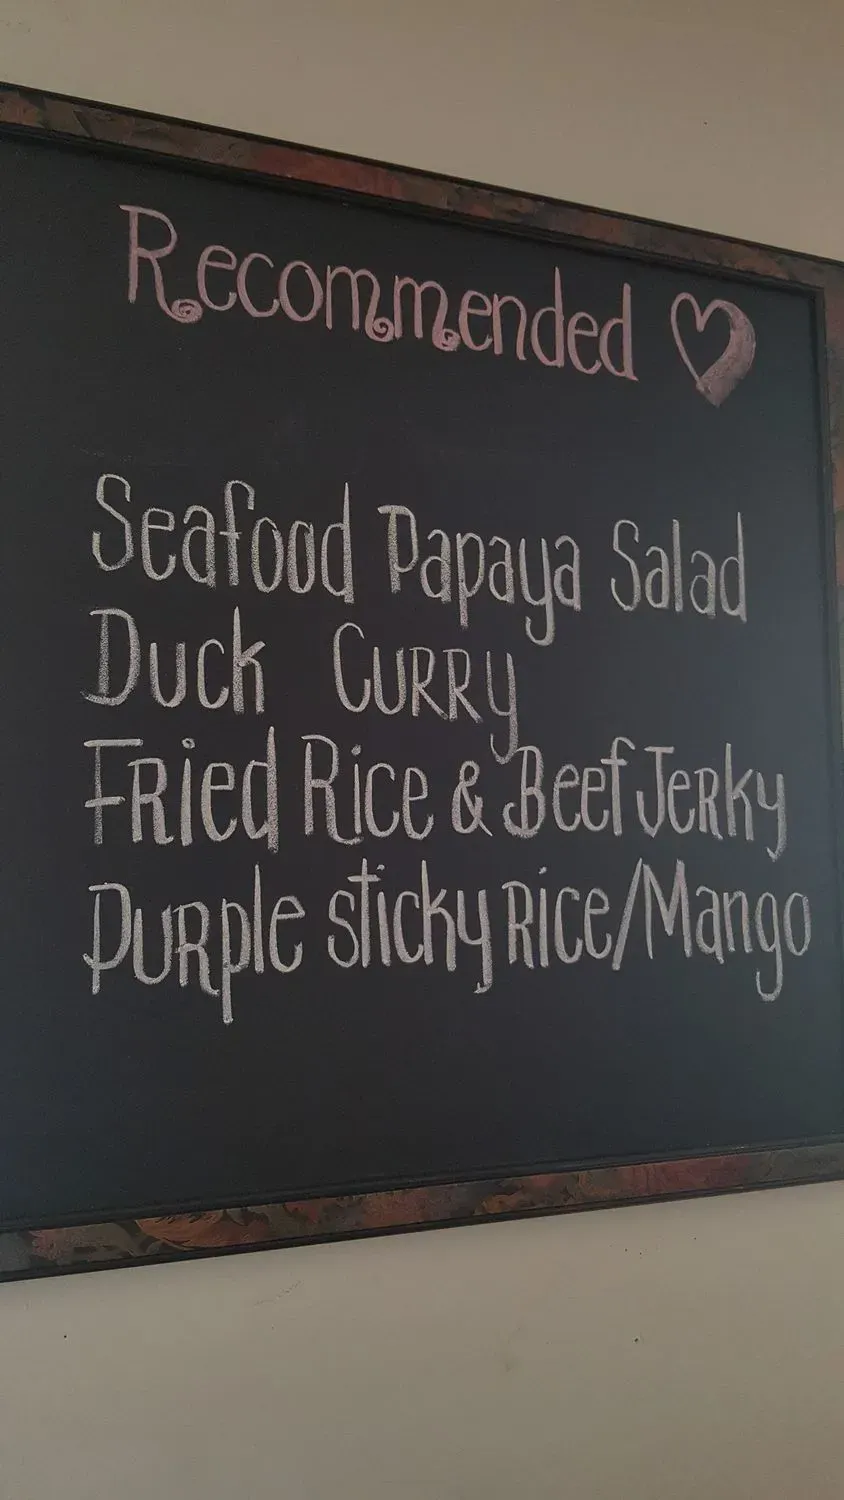 Recommended
Seafood Papaya Salad
Duck Curry
Fried Rice & Beef Jerky
Purple sticky Rice/Mango